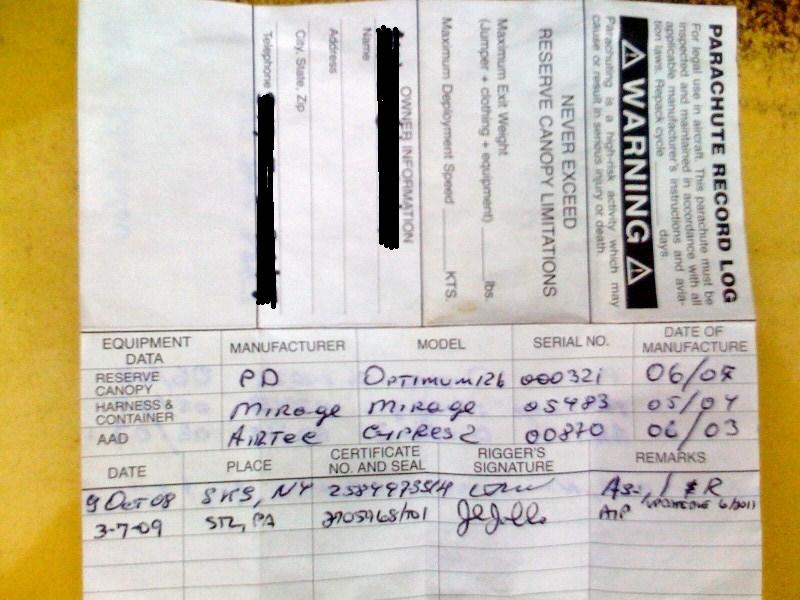 PARACHUTE RECORD LOG
For legal use in aircraft. This parachute must be
inspected and maintained in accordance with all
applicable manufacturer's instructions and avia-
tion laws. Repack cycle ______ days.
WARNING
Parachuting is a high-risk activity which may
cause or result in serious injury or death.
NEVER EXCEED
RESERVE CANOPY LIMITATIONS
Maximum Exit Weight
(Jumper + clothing + equipment) ______ lbs.
Maximum Deployment Speed ______ KTS.
OWNER INFORMATION
Name
Address
City, State, Zip
Telephone
EQUIPMENT DATA MANUFACTURER MODEL SERIAL NO. DATE OF MANUFACTURE
RESERVE CANOPY PD OPTIMUM126 000321 06/07
HARNESS & CONTAINER MIRAGE MIRAGE 05483 05/04
AAD AIRTEC CYPRES2 00870 06/03
DATE PLACE CERTIFICATE NO. AND SEAL RIGGER'S SIGNATURE REMARKS
9 Oct 08 SKS, NY I & R
3-7-09 PA AIP 6/2011